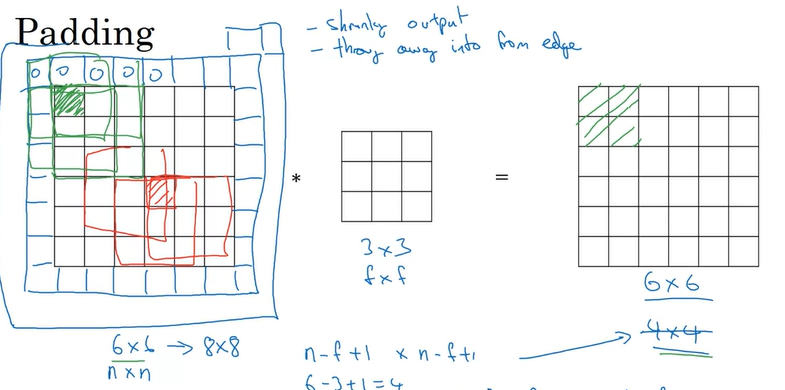 Padding
- shrinky output
- throy away info from edge
0 0 0 0 0
*
=
3 × 3
f × f
6 × 6
4 × 4
6 × 6 → 8×8
n × n
n-f+1 × n-f+1
6-3+1=4